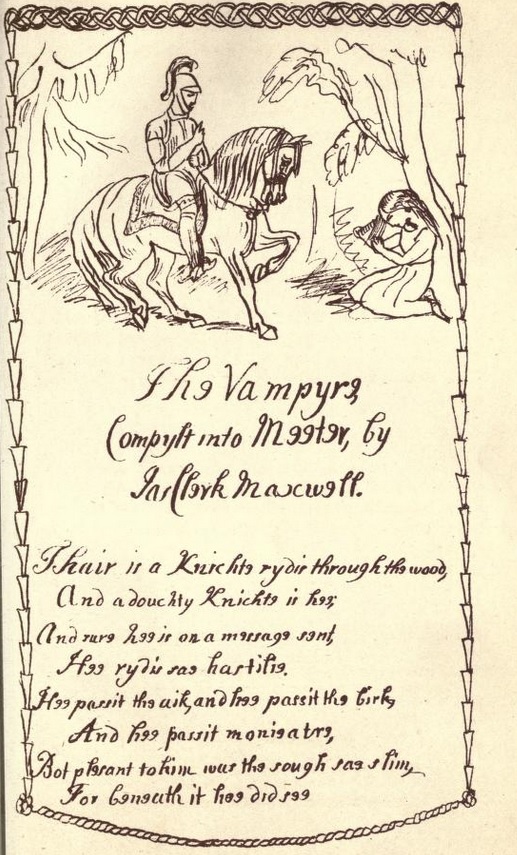 The Vampyre,
Compylt into Meeter, by
Jas Clerk Maxwell.
Thair is a Knichte rydis through the wood,
And a douchty Knichte is hee;
And sure hee is on a message sent,
Hee rydis sae hastilie.
Hee passit the aik, and hee passit the birk,
And hee passit monie a tre,
Bot plesant to him was the saugh sae slim,
For beneath it hee did see